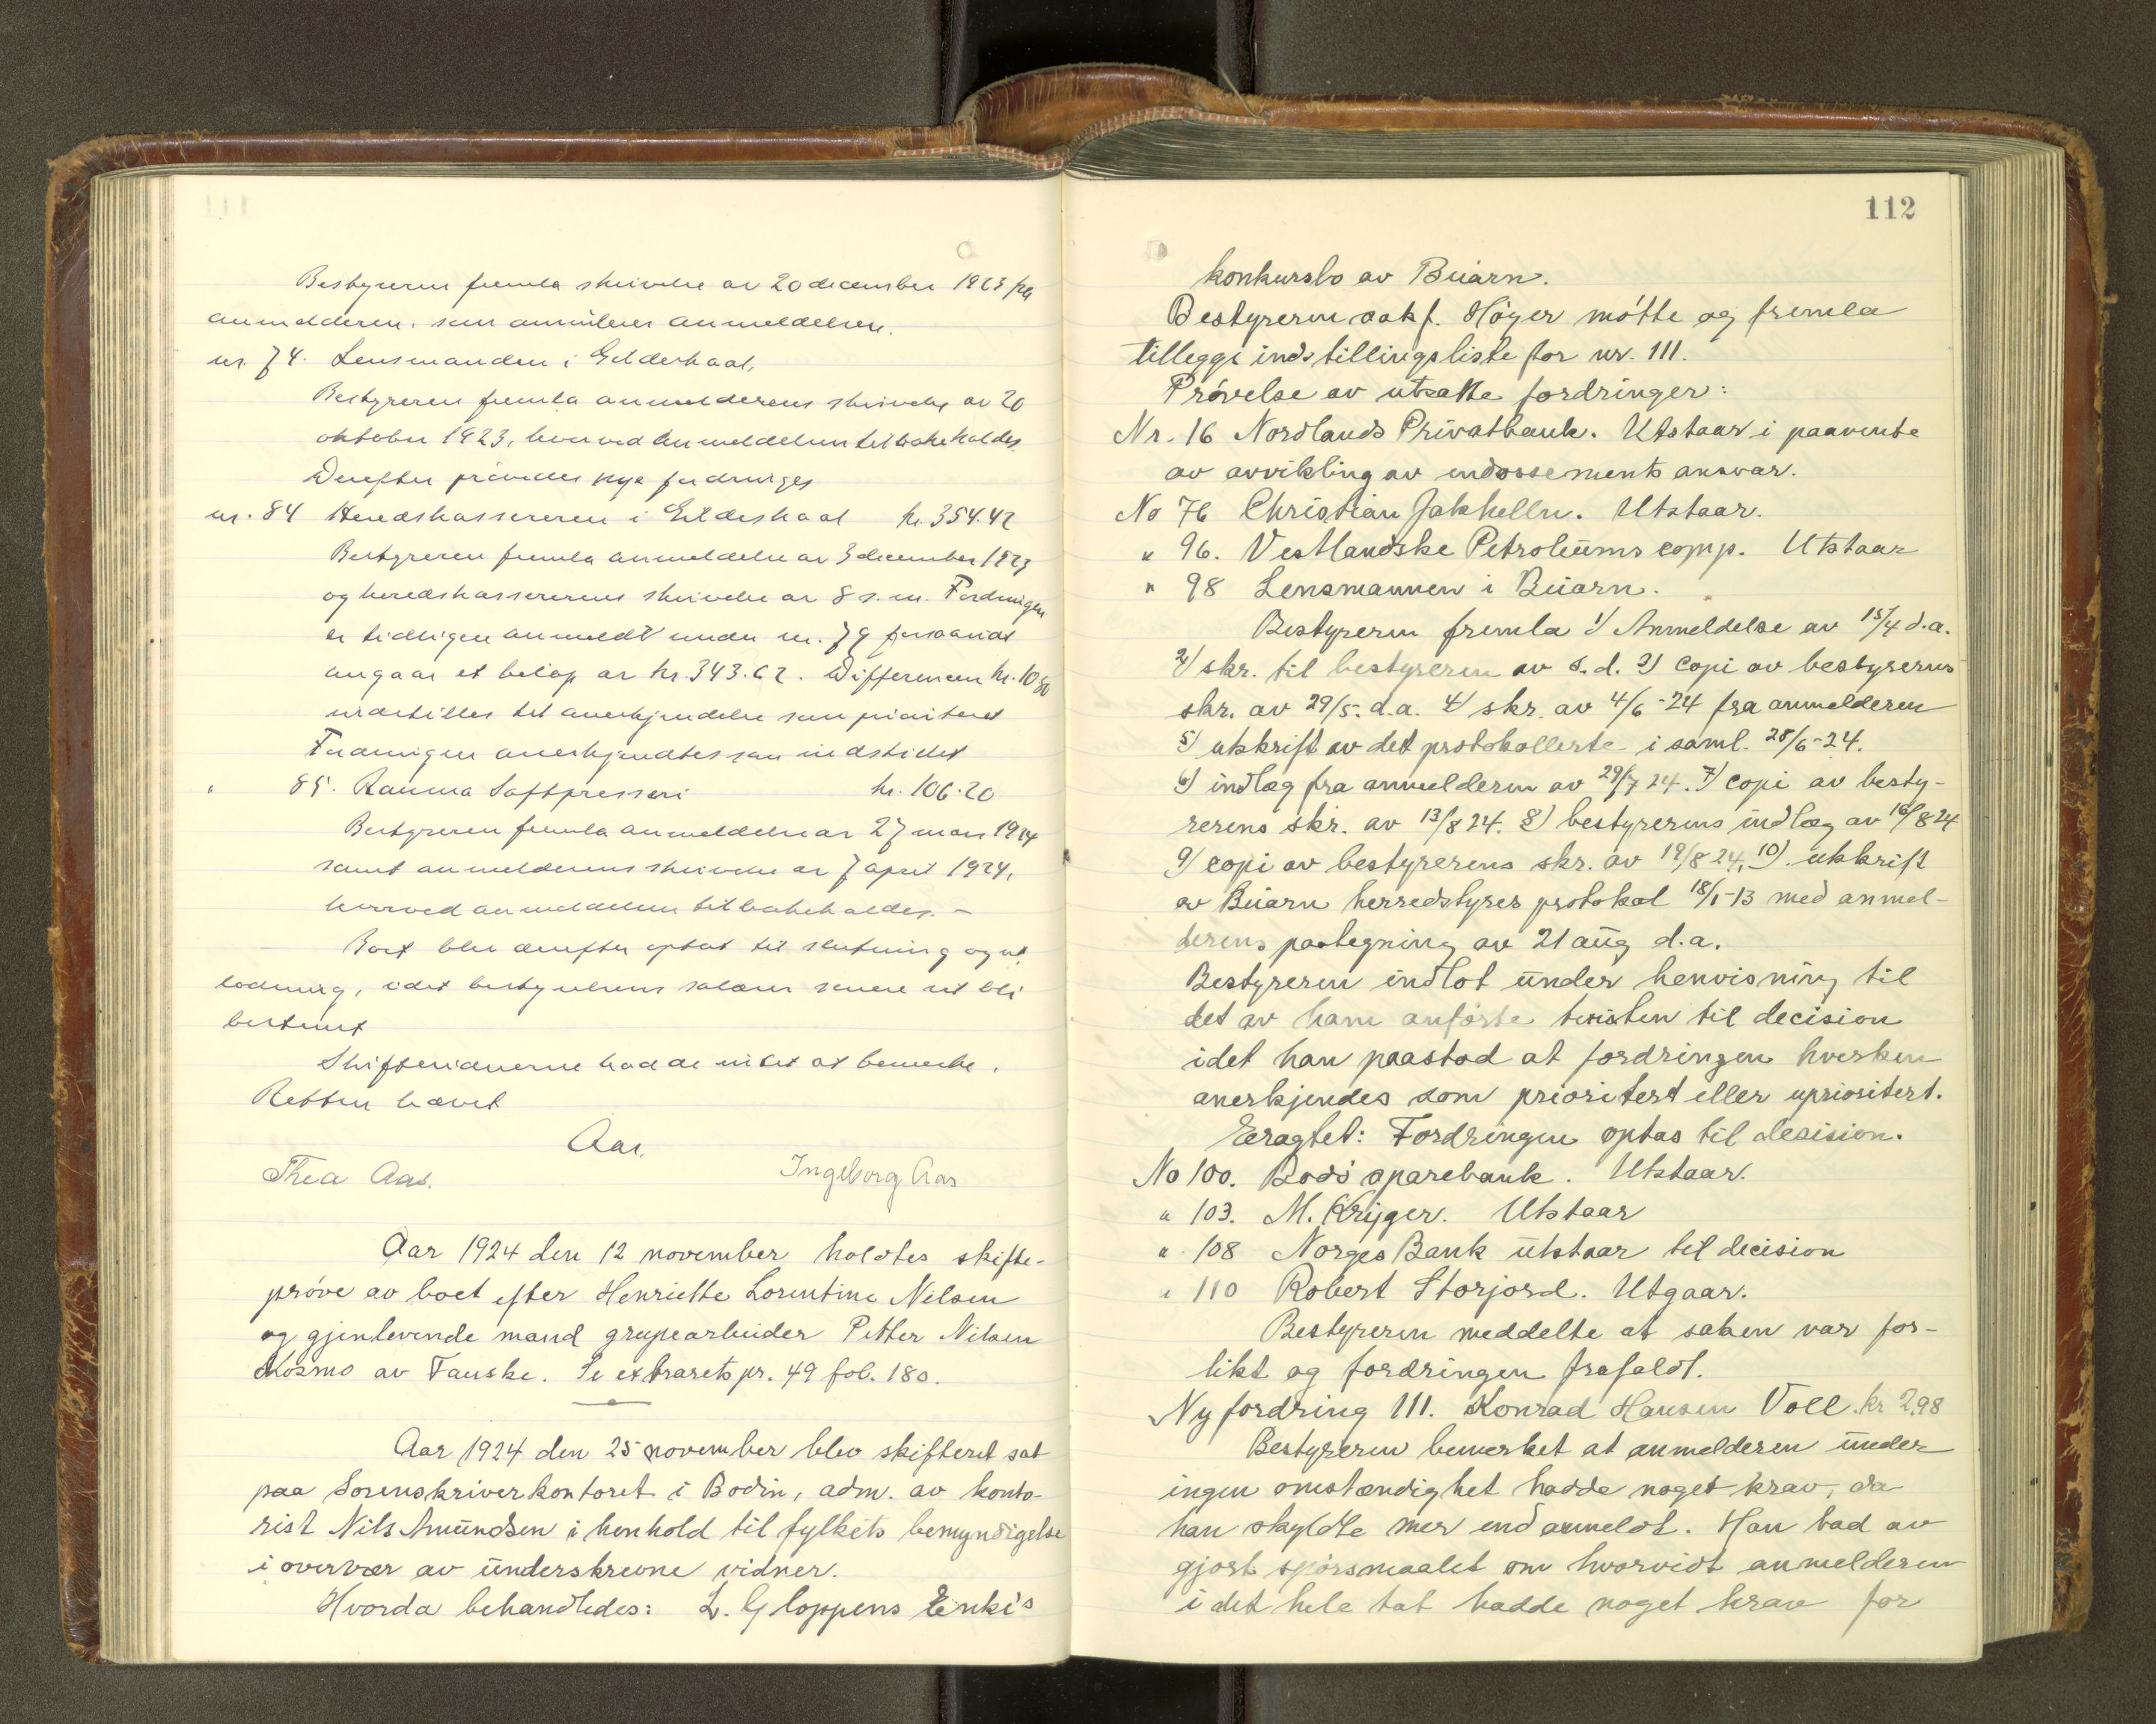 Bestyreren fremla skrivelse av 20 december 1923 fra
anmelderen, som annulerer anmeldelsen.
nr. 74. Lensmanden i Gildeskaal.
Bestyreren fremla anmelderens skrivelse av 20
oktober 1923, hvorved anmeldelsen tilbakekaldes.
Derefter prøvedes nye fordringer
nr. 84 Heredskassereren i Gildeskaal kr. 354.42
Bestyreren fremla anmeldelse av 3 december 1923
og heredskassererens skrivelse av 8 s.m. Fordringen
er tidligere anmeldt under nr. 79 forsaavidt
angaar et beløp av kr. 343.62. Differencen kr. 10.80
indstilles til anerkjendelse som prioritert
Fordringen anerkjendtes som indstillet
" 85. Rauma Saftpresseri kr. 106.20
Bestyreren fremla anmeldelse av 27 mars 1924
samt anmelderens skrivelse av 7 april 1924,
hvorved anmeldelsen tilbakekaldes. –
Boet blev derefter optat til slutning og ut-
lodning, idet bestyrelsens salær senere vil bli
bestemt
Skiftevidnerne hadde intet at bemerke.
Retten hævet
Aas.
Thea Aas. Ingeborg Aas
Aar 1924 den 12 november holdtes skifte-
prøve av boet efter Henriette Lorentine Nilsen
og gjenlevende mand grupearbeider Petter Nilsen
Kosmo av Fauske. Se extrarets pr. 49 fol. 180.
Aar 1924 den 25 november blev skifteret sat
paa Sorenskriverkontoret i Bodin, adm. av konto-
rist Nils Amundsen i henhold til fylkets bemyndigelse
i overvær av underskrevne vidner.
Hvorda behandledes: L. Gloppens Enke's
112
konkursbo av Beiarn.
Bestyreren sakf. Høyer møtte og fremla
tilleggs indstillingsliste for nr. 111.
Prøvelse av utsatte fordringer:
Nr. 16 Nordlands Privatbank. Utstaar i paavente
av avvikling av endossements ansvar.
No 76 Christian Jakhelln. Utstaar.
" 96. Vestlandske Petroleums comp. Utstaar
" 98 Lensmannen i Beiarn.
Bestyreren fremla 1) Anmeldelse av 15/4 d.a.
2) skr. til bestyreren av s.d. 3) copi av bestyrerens
skr. av 29/5. d.a. 4) skr. av 4/6-24 fra anmelderen
5) utskrift av det protokollerte i saml. 28/6-24.
6) indlæg fra anmelderen av 29/7 24. 7) copi av besty-
rerens skr. av 13/8 24. 8) bestyrerens indlæg av 16/8 24
9) copi av bestyrerens skr. av 19/8 24. 10) utskrift
av Beiarn herredstyres protokol 18/1-13 med anmel-
derens paategning av 21 aug d.a.
Bestyreren indlot under henvisning til
det av ham anførte tvisten til decision
idet han paastod at fordringen hverken
anerkjendes som prioritert eller uprioritert.
Eragtet: Fordringen optas til decision.
No 100. Bodø sparebank. Utstaar.
" 103. M. Krüger. Utstaar
" 108 Norges Bank utstaar til decision
" 110 Robert Storjord. Utgaar.
Bestyreren meddelte at saken var for-
likt og fordringen frafaldt.
Ny fordring 111. Konrad Hansen Voll. kr 298
Bestyreren bemerket at anmelderen under
ingen omstændighet hadde noget krav, da
han skyldte mer end anmeldt. Han bad av
gjort spørsmaalet om hvorvidt anmelderen
i det hele tat hadde noget krav for